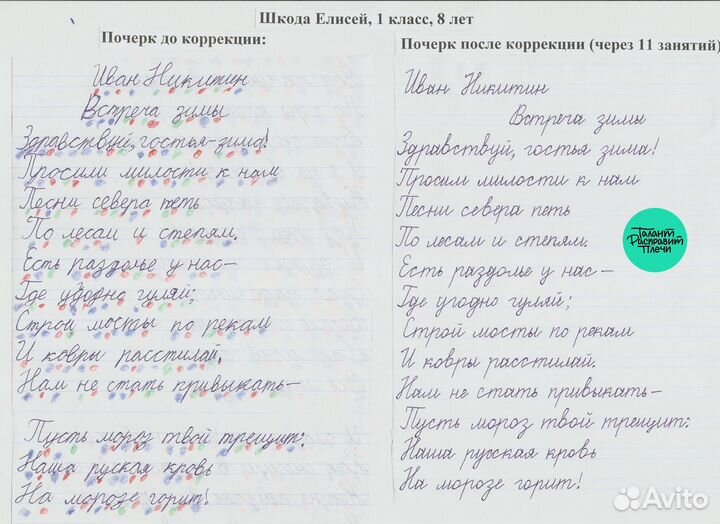 Шкода Елисей, 1 класс, 8 лет
Почерк до коррекции:
Иван Никитин
Встреча зимы
Здравствуй, гостья-зима!
Просили милости к нам
Песни севера петь
По лесам и степям.
Есть раздолье у нас-
Где угодно гуляй;
Строй мосты по рекам
И ковры расстилай,
Нам не стать привыкать-
Пусть мороз твой трещит:
Наша руская кровь
На морозе горит!
Почерк после коррекции (через 11 занятий)
Иван Никитин
Встреча зимы
Здравствуй, гостья зима!
Просим милости к нам
Песни севера петь
По лесам и степям.
Есть раздолье у нас-
Где угодно гуляй;
Строй мосты по рекам
И ковры расстилай.
Нам не стать привыкать-
Пусть мороз твой трещит:
Наша русская кровь
На морозе горит!
Талант
Расправит
Плечи
Avito